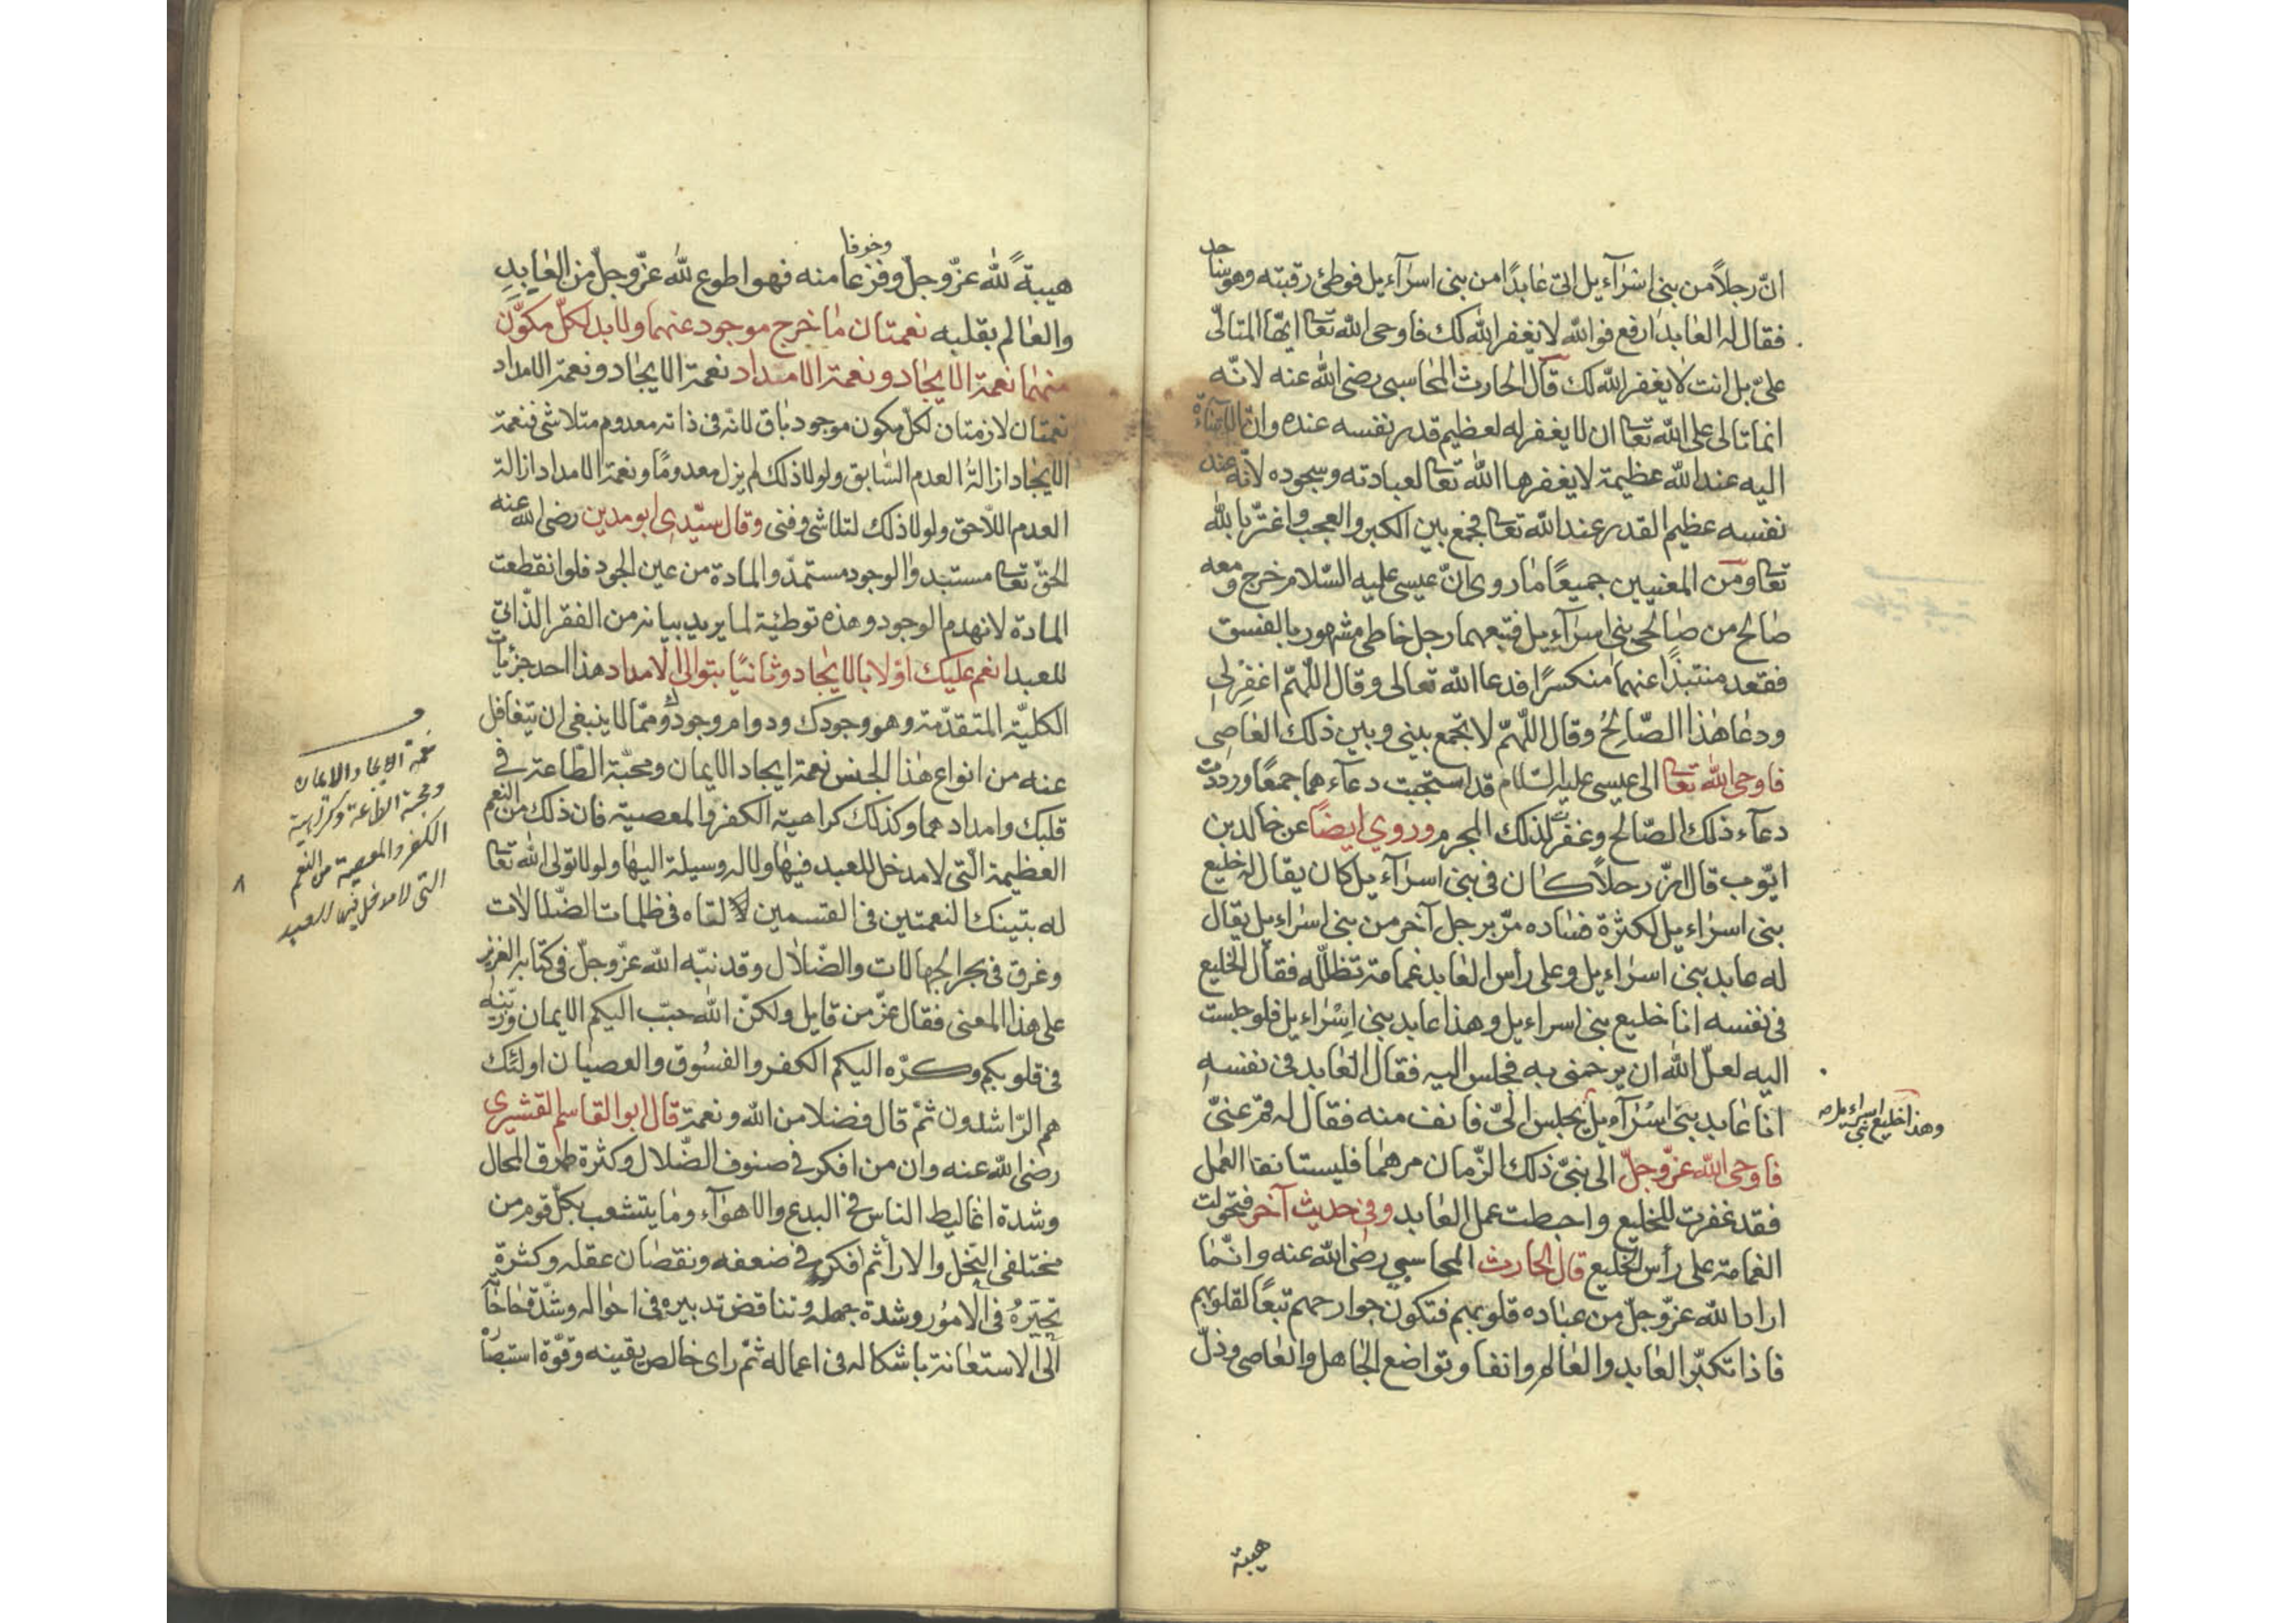 انّ رجلاً من بنى اسرآءيل اتى عابدًا من بنى اسرآءيل فوطئ رقبته وهو ساجد
فقال له العابد ارفع فوالله لا يغفر الله لك فاوحى الله تعا ايّها المتالّى
علىّ بل انت لا يغفر الله لك قال الحارث المحاسبى رضى الله عنه لانّه
انما تالى على الله تعا ان لا يغفر له لعظيم قدر نفسه عنده وانّ الاساءة
اليه عند الله عظيمة لا يغفرها الله تعا لعبادته وسجوده لانّه عند
نفسه عظيم القدر عند الله تعا فجمع بين الكبر والعجب واغترّ بالله
تعا ومن المعنيين جميعًا ما روى انّ عيسى عليه السّلام خرج ومعه
صالح من صالحى بنى اسرآءيل فتبعهما رجل خاطى مشهور بالفسق
فقعد منتبذًا عنهما منكسرًا فدعا الله تعالى وقال اللّهمّ اغفِرْ لى
ودعا هذا الصّالحُ وقال اللّهمّ لا تجمع بينى وبين ذلك العاصى
فاوحى الله تعا الى عيسى عليه السّلام قد استجبت دعآءهما جمعًا ورددت
دعآء ذلك الصّالح وغفرت لذلك المجرم وروي ايضاً عن خالد بن
ايّوب قال ان رجلاً كان فى بنى اسرآءيل كان يقال له خليع
بنى اسرٰاءيل لكثرة فساده مرّ برجل آخر من بنى اسراءيل يقال
له عابد بنى اسراءيل وعلى رأس العابد غمامة تظلّله فقال الخليع
فى نفسه انا خليع بنى اسراءيل وهذا عابد بنى اِسْرٰاءيل فلو جلست
اليه لعلّ الله ان يرحمنى به فجلس اليه فقال العابد فى نفسه
انا عابد بنى اسْرآءيل يجلس الىّ فانف منه فقال له قم عنىّ
وهذا خليع بنى اسراءيل صح
فاوحى الله عزّ وجلّ الى نبىّ ذلك الزّمان مرهما فليستانفا العمل
فقد غفرت للخليع واحبطت عمل العابد وفى حديث آخر فتحولت
الغمامة على رأس الخليع قال الحارث المحاسبي رضى الله عنه وانّما
اراد الله عزّ وجلّ من عباده قلوبهم فتكون جوارحهم تبعًا لقلوبهم
فاذا تكبّر العابد والعالم وانفا وتواضع الجاهل والعاصى وذلّ
هيبة
هيبةً لله عزّ وجلّ وفزعا وخوفا منه فهو اطوع لله عزّ وجلّ من العابد
والعالم بقلبه نعمتان ما خرج موجود عنهما ولا بد لكلّ مكوّن
منهما نعمة الايجاد ونعمة الامداد نعمة الايجاد ونعمة الامداد
نعمتان لازمتان لكلّ مكون موجود باق لانه فى ذاته معدوم متلاشى فنعمة
الايجاد ازالة العدم السّابق ولولا ذلك لم يزل معدومًا ونعمة الامداد ازالة
العدم اللّاحق ولولا ذلك لتلاشى وفنى وقال سيّدى ابو مدين رضى الله عنه
الحقّ تعا مستبد والوجود مستمدّ والمادة من عين الجود فلو انقطعت
المادة لانهدم الوجود وهذه توطئية لما يريد بيانه من الفقر الذّاتى
للعبد انعم عليك اوّلا بالايجاد وثانيًا بتوالى الامداد هذا احد جزئيات
الكليّة المتقدّمة وهو وجودك ودوام وجودك وممّا لا ينبغى ان يتغافل
عنه من انواع هذا الجنس نعمة ايجاد الايمان ومحبّة الطّاعة فى
قلبك وامدادهما وكذلك كراهية الكفر والمعصية فان ذلك من النعم
العظيمة الّتى لا مدخل للعبد فيها ولا له وسيلة اليها ولولا تولى الله تعا
له بتينك النعمتين فى القسمين لالقاه فى ظلمات الضّلالات
وغرق فى بحر الجهالات والضّلال وقد نبّه الله عزّ وجلّ فى كتابه العزيز
على هذا المعنى فقال عزّ من قايل ولكنّ الله حبّب اليكم الايمان وزيّنه
فى قلوبكم وكرّه اليكم الكفر والفسُوق والعصيان اولئك
هم الرّاشدون ثمّ قال فضلا من الله ونعمة قال ابو القاسم القشيرى
رضى الله عنه وان من افكر فى صنوف الضّلال وكثرة طرق المحال
وشدة اغاليط الناس فى البدع والاهوآء وما يتشعب بكلّ قوم من
مختلفى النّحل والارا ثم افكر فى ضعفه ونقصان عقله وكثرة
تحيّرهُ فى الامُور وشدة جهله وتناقض تدبيره فى احواله وشدّة حاجاته
الى الاستعانة باشكاله فى اعماله ثمّ راى خالص يقينه وقوّة استبصا
نعمة الايجاد والايمان
ومحبة الطاعة وكراهية
الكفر والمعصية من النعم
التى لا مدخل فيها للعبد
٨